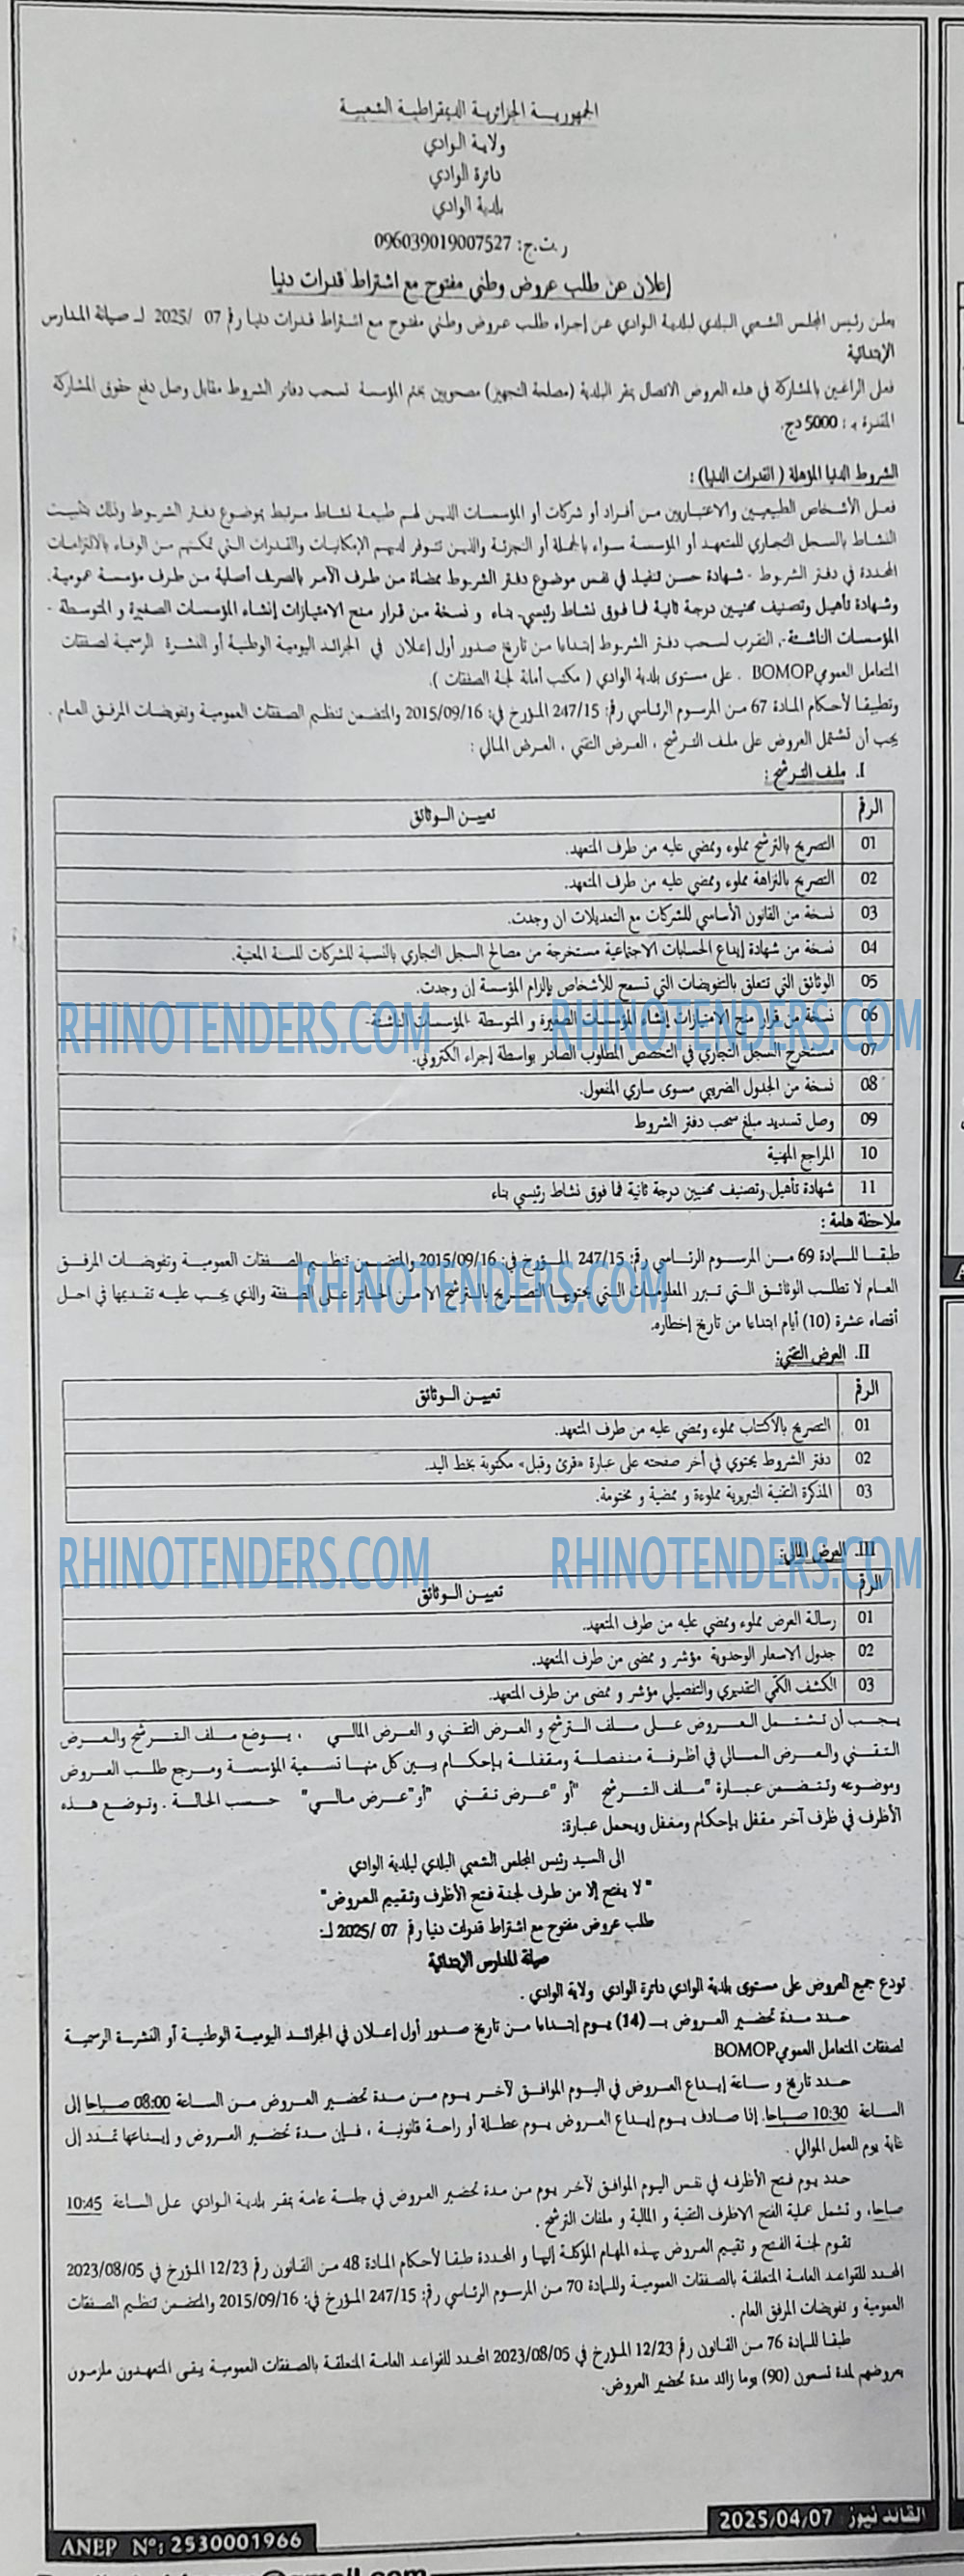 الجمهورية الجزائرية الديمقراطية الشعبية
ولاية الوادي
دائرة الوادي
بلدية الوادي
ر.ت.ج: 096039019007527
إعلان عن طلب عروض وطني مفتوح مع اشتراط قدرات دنيا
يعلن رئيس المجلس الشعبي البلدي لبلدية الوادي عن إجراء طلب عروض وطني مفتوح مع اشتراط قدرات دنيا رقم 07 /2025 لـ صيانة المدارس
الإبتدائية
فعلى الراغبين بالمشاركة في هذه العروض الاتصال بمقر البلدية (مصلحة التجهيز) مصحوبين بختم المؤسسة لسحب دفاتر الشروط مقابل وصل دفع حقوق المشاركة
المقدرة بـ : 5000 دج.
الشروط الدنيا المؤهلة ( القدرات الدنيا) :
فعلى الأشخاص الطبيعيين والاعتباريين من أفراد أو شركات أو المؤسسات الذين لهم طبيعة نشاط مرتبط بموضوع دفتر الشروط وذلك بتثبيت
النشاط بالسجل التجاري للمتعهد أو المؤسسة سواء بالجملة أو التجزئة والذين تتوفر لديهم الإمكانيات والقدرات التي تمكنهم من الوفاء بالالتزامات
المحددة في دفتر الشروط - شهادة حسن تنفيذ في نفس موضوع دفتر الشروط ممضاة من طرف الآمر بالصرف أصلية من طرف مؤسسة عمومية.
وشهادة تأهيل وتصنيف مهنيين درجة ثانية فما فوق نشاط رئيسي- بناء و نسخة من قرار منح الامتيازات إنشاء المؤسسات الصغيرة و المتوسطة -
المؤسسات الناشئة-, التقرب لسحب دفتر الشروط إبتداءا من تاريخ صدور أول إعلان في الجرائد اليومية الوطنية أو النشرة الرسمية لصفقات
المتعامل العمومي BOMOP . على مستوى بلدية الوادي ( مكتب أمانة لجنة الصفقات ).
وتطبيقا لأحكام المادة 67 من المرسوم الرئاسي رقم: 247/15 المؤرخ في: 2015/09/16 والمتضمن تنظيم الصفقات العمومية وتفويضات المرفق العام .
يجب أن تشتمل العروض على ملف الترشح ، العرض التقني ، العرض المالي :
I. ملف الترشح :
الرقم تعيين الوثائق
01 التصريح بالترشح مملوء وممضي عليه من طرف المتعهد.
02 التصريح بالنزاهة مملوء وممضي عليه من طرف المتعهد.
03 نسخة من القانون الأساسي للشركات مع التعديلات ان وجدت.
04 نسخة من شهادة إيداع الحسابات الاجتماعية مستخرجة من مصالح السجل التجاري بالنسبة للشركات للسنة المعنية.
05 الوثائق التي تتعلق بالتفويضات التي تسمح للأشخاص بإلزام المؤسسة إن وجدت.
06 نسخة من قرار منح الامتيازات إنشاء المؤسسات الصغيرة و المتوسطة -المؤسسات الناشئة-
07 مستخرج السجل التجاري في التخصص المطلوب الصادر بواسطة إجراء الكتروني.
08 نسخة من الجدول الضريبي مسوى ساري المفعول.
09 وصل تسديد مبلغ سحب دفتر الشروط
10 المراجع المهنية
11 شهادة تأهيل وتصنيف مهنيين درجة ثانية فما فوق نشاط رئيسي بناء
RHINOTENDERS.COM RHINOTENDERS.COM
ملاحظة هامة :
طبقا للمادة 69 من المرسوم الرئاسي رقم: 247/15 المؤرخ في: 2015/09/16 والمتضمن تنظيم الصفقات العمومية وتفويضات المرفق
العام لا تطلب الوثائق التي تبرر المعلومات التي يحتويها التصريح بالترشح الا من الحائز على الصفقة والذي يجب عليه تقديمها في اجل
أقصاه عشرة (10) أيام ابتداءا من تاريخ إخطاره.
RHINOTENDERS.COM
II. العرض التقني:
الرقم تعيين الوثائق
01 التصريح بالاكتتاب مملوء وممضي عليه من طرف المتعهد.
02 دفتر الشروط يحتوي في أخر صفحته على عبارة «قرئ وقبل» مكتوبة بخط اليد.
03 المذكرة التقنية التبريرية مملوءة و ممضية و مختومة.
III. العرض المالي:
RHINOTENDERS.COM RHINOTENDERS.COM
الرقم تعيين الوثائق
01 رسالة العرض مملوء وممضي عليه من طرف المتعهد.
02 جدول الاسعار الوحدوية مؤشر و ممضى من طرف المتعهد.
03 الكشف الكمي التقديري والتفصيلي مؤشر و ممضى من طرف المتعهد.
يجب أن تشتمل العروض على ملف الترشح و العرض التقني و العرض المالي ، يوضع ملف الترشح والعرض
التقني والعرض المالي في أظرفة منفصلة ومقفلة بإحكام يبين كل منها تسمية المؤسسة ومرجع طلب العروض
وموضوعه وتتضمن عبارة "ملف الترشح "أو "عرض تقني "أو"عرض مالي" حسب الحالة . وتوضع هذه
الأظرف في ظرف آخر مقفل بإحكام ومغفل ويحمل عبارة:
الى السيد رئيس المجلس الشعبي البلدي لبلدية الوادي
" لا يفتح إلا من طرف لجنة فتح الأظرف وتقييم العروض"
طلب عروض مفتوح مع اشتراط قدرات دنيا رقم 07 /2025 لـ:
صيانة المدارس الإبتدائية
تودع جميع العروض على مستوى بلدية الوادي دائرة الوادي ولاية الوادي .
حدد مدة تحضير العروض بـ (14) يوم إبتداءا من تاريخ صدور أول إعلان في الجرائد اليومية الوطنية أو النشرة الرسمية
لصفقات المتعامل العمومي BOMOP
حدد تاريخ و ساعة إيداع العروض في اليوم الموافق لآخر يوم من مدة تحضير العروض من الساعة 08:00 صباحا إلى
الساعة 10:30 صباحا. إذا صادف يوم إيداع العروض يوم عطلة أو راحة قانونية ، فإن مدة تحضير العروض و إيداعها تمدد إلى
غاية يوم العمل الموالي .
حدد يوم فتح الأظرفة في نفس اليوم الموافق لآخر يوم من مدة تحضير العروض في جلسة عامة بمقر بلدية الوادي على الساعة 10:45
صباحا، و تشمل عملية الفتح الاظرف التقنية و المالية و ملفات الترشح .
تقوم لجنة الفتح و تقييم العروض بهذه المهام المؤكلة إليها و المحددة طبقا لأحكام المادة 48 من القانون رقم 12/23 المؤرخ في 2023/08/05
المحدد للقواعد العامة المتعلقة بالصفقات العمومية وللمادة 70 من المرسوم الرئاسي رقم: 247/15 المؤرخ في: 2015/09/16 والمتضمن تنظيم الصفقات
العمومية و تفويضات المرفق العام .
طبقا للمادة 76 من القانون رقم 12/23 المؤرخ في 2023/08/05 المحدد للقواعد العامة المتعلقة بالصفقات العمومية يبقى المتعهدون ملزمون
بعروضهم لمدة تسعون (90) يوما زائد مدة تحضير العروض.
القائد نيوز: 2025/04/07
ANEP N°: 2530001966